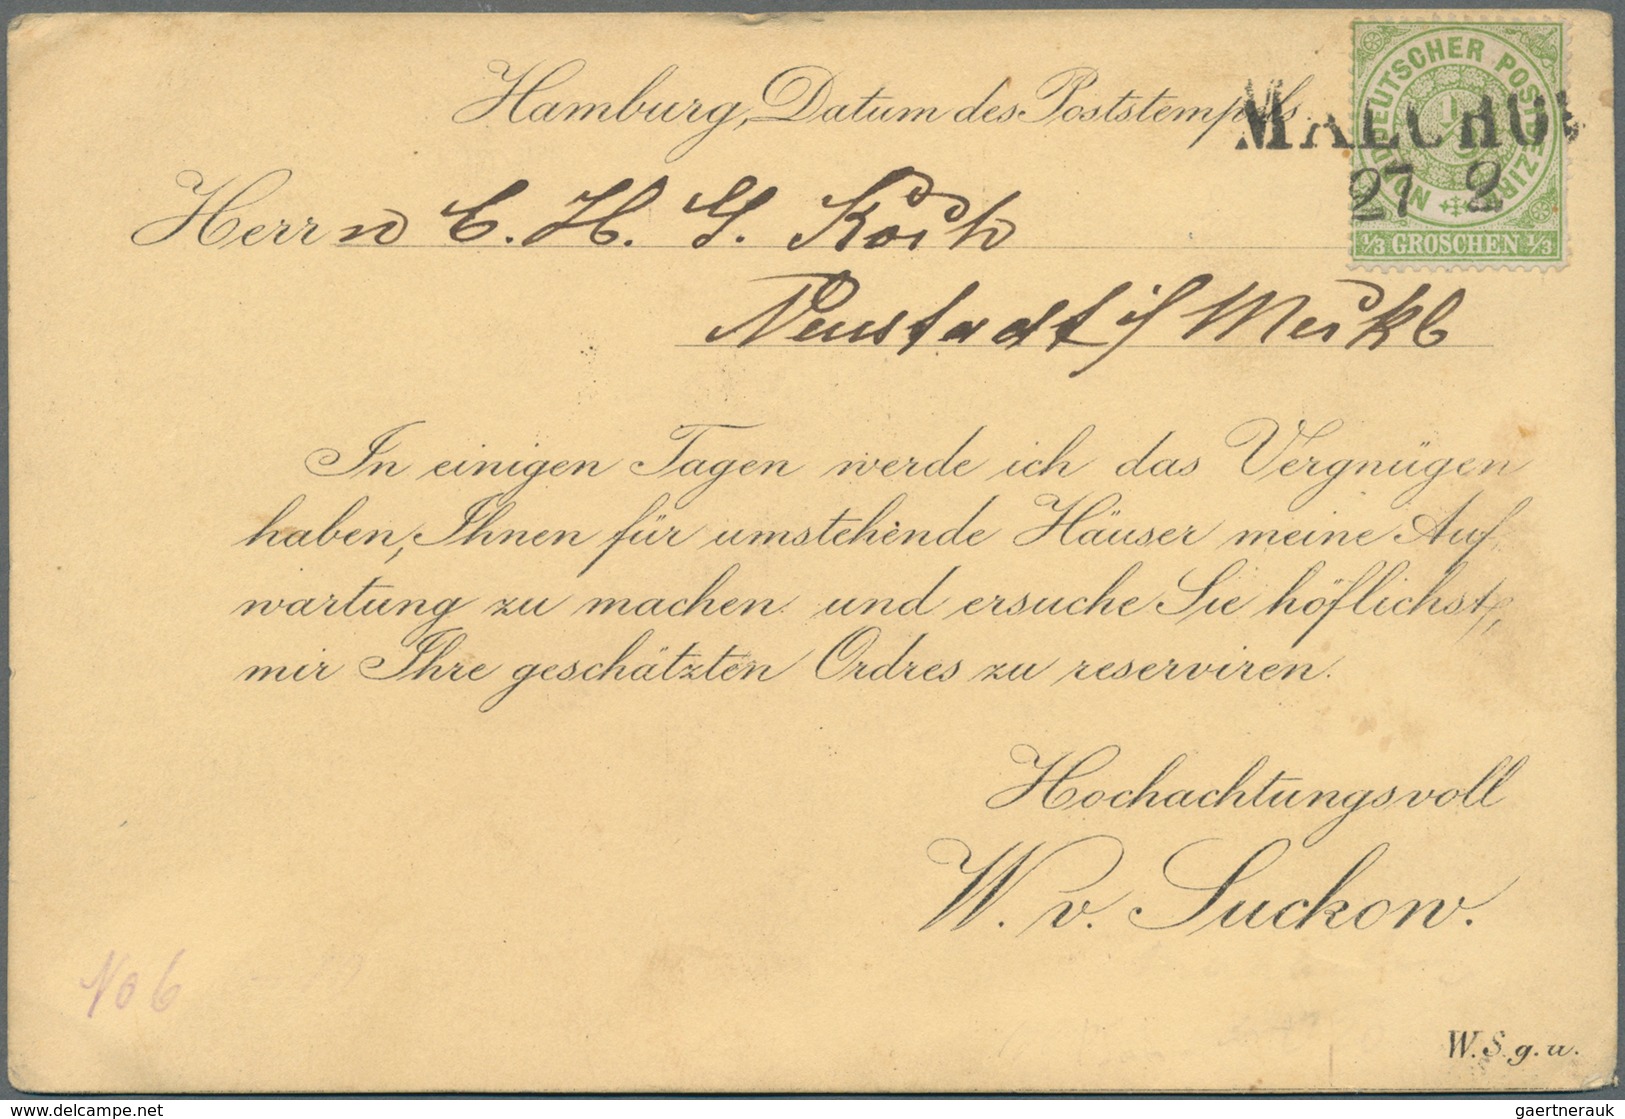 Hamburg, Datum des Poststempels.
NORDDEUTSCHER POSTBEZIRK
1/3 GROSCHEN 1/3
MALCHOW
27 2
Herrn C. H. G. Koch
Neustadt i/ Meckl
In einigen Tagen werde ich das Vergnügen
haben, Ihnen für umstehende Häuser meine Auf-
wartung zu machen und ersuche Sie höflichst,
mir Ihre geschätzten Ordres zu reserviren.
Hochachtungsvoll
W. v. Suckow.
No 6
W. S. g. u.
www.delcampe.net
gaertnerauk